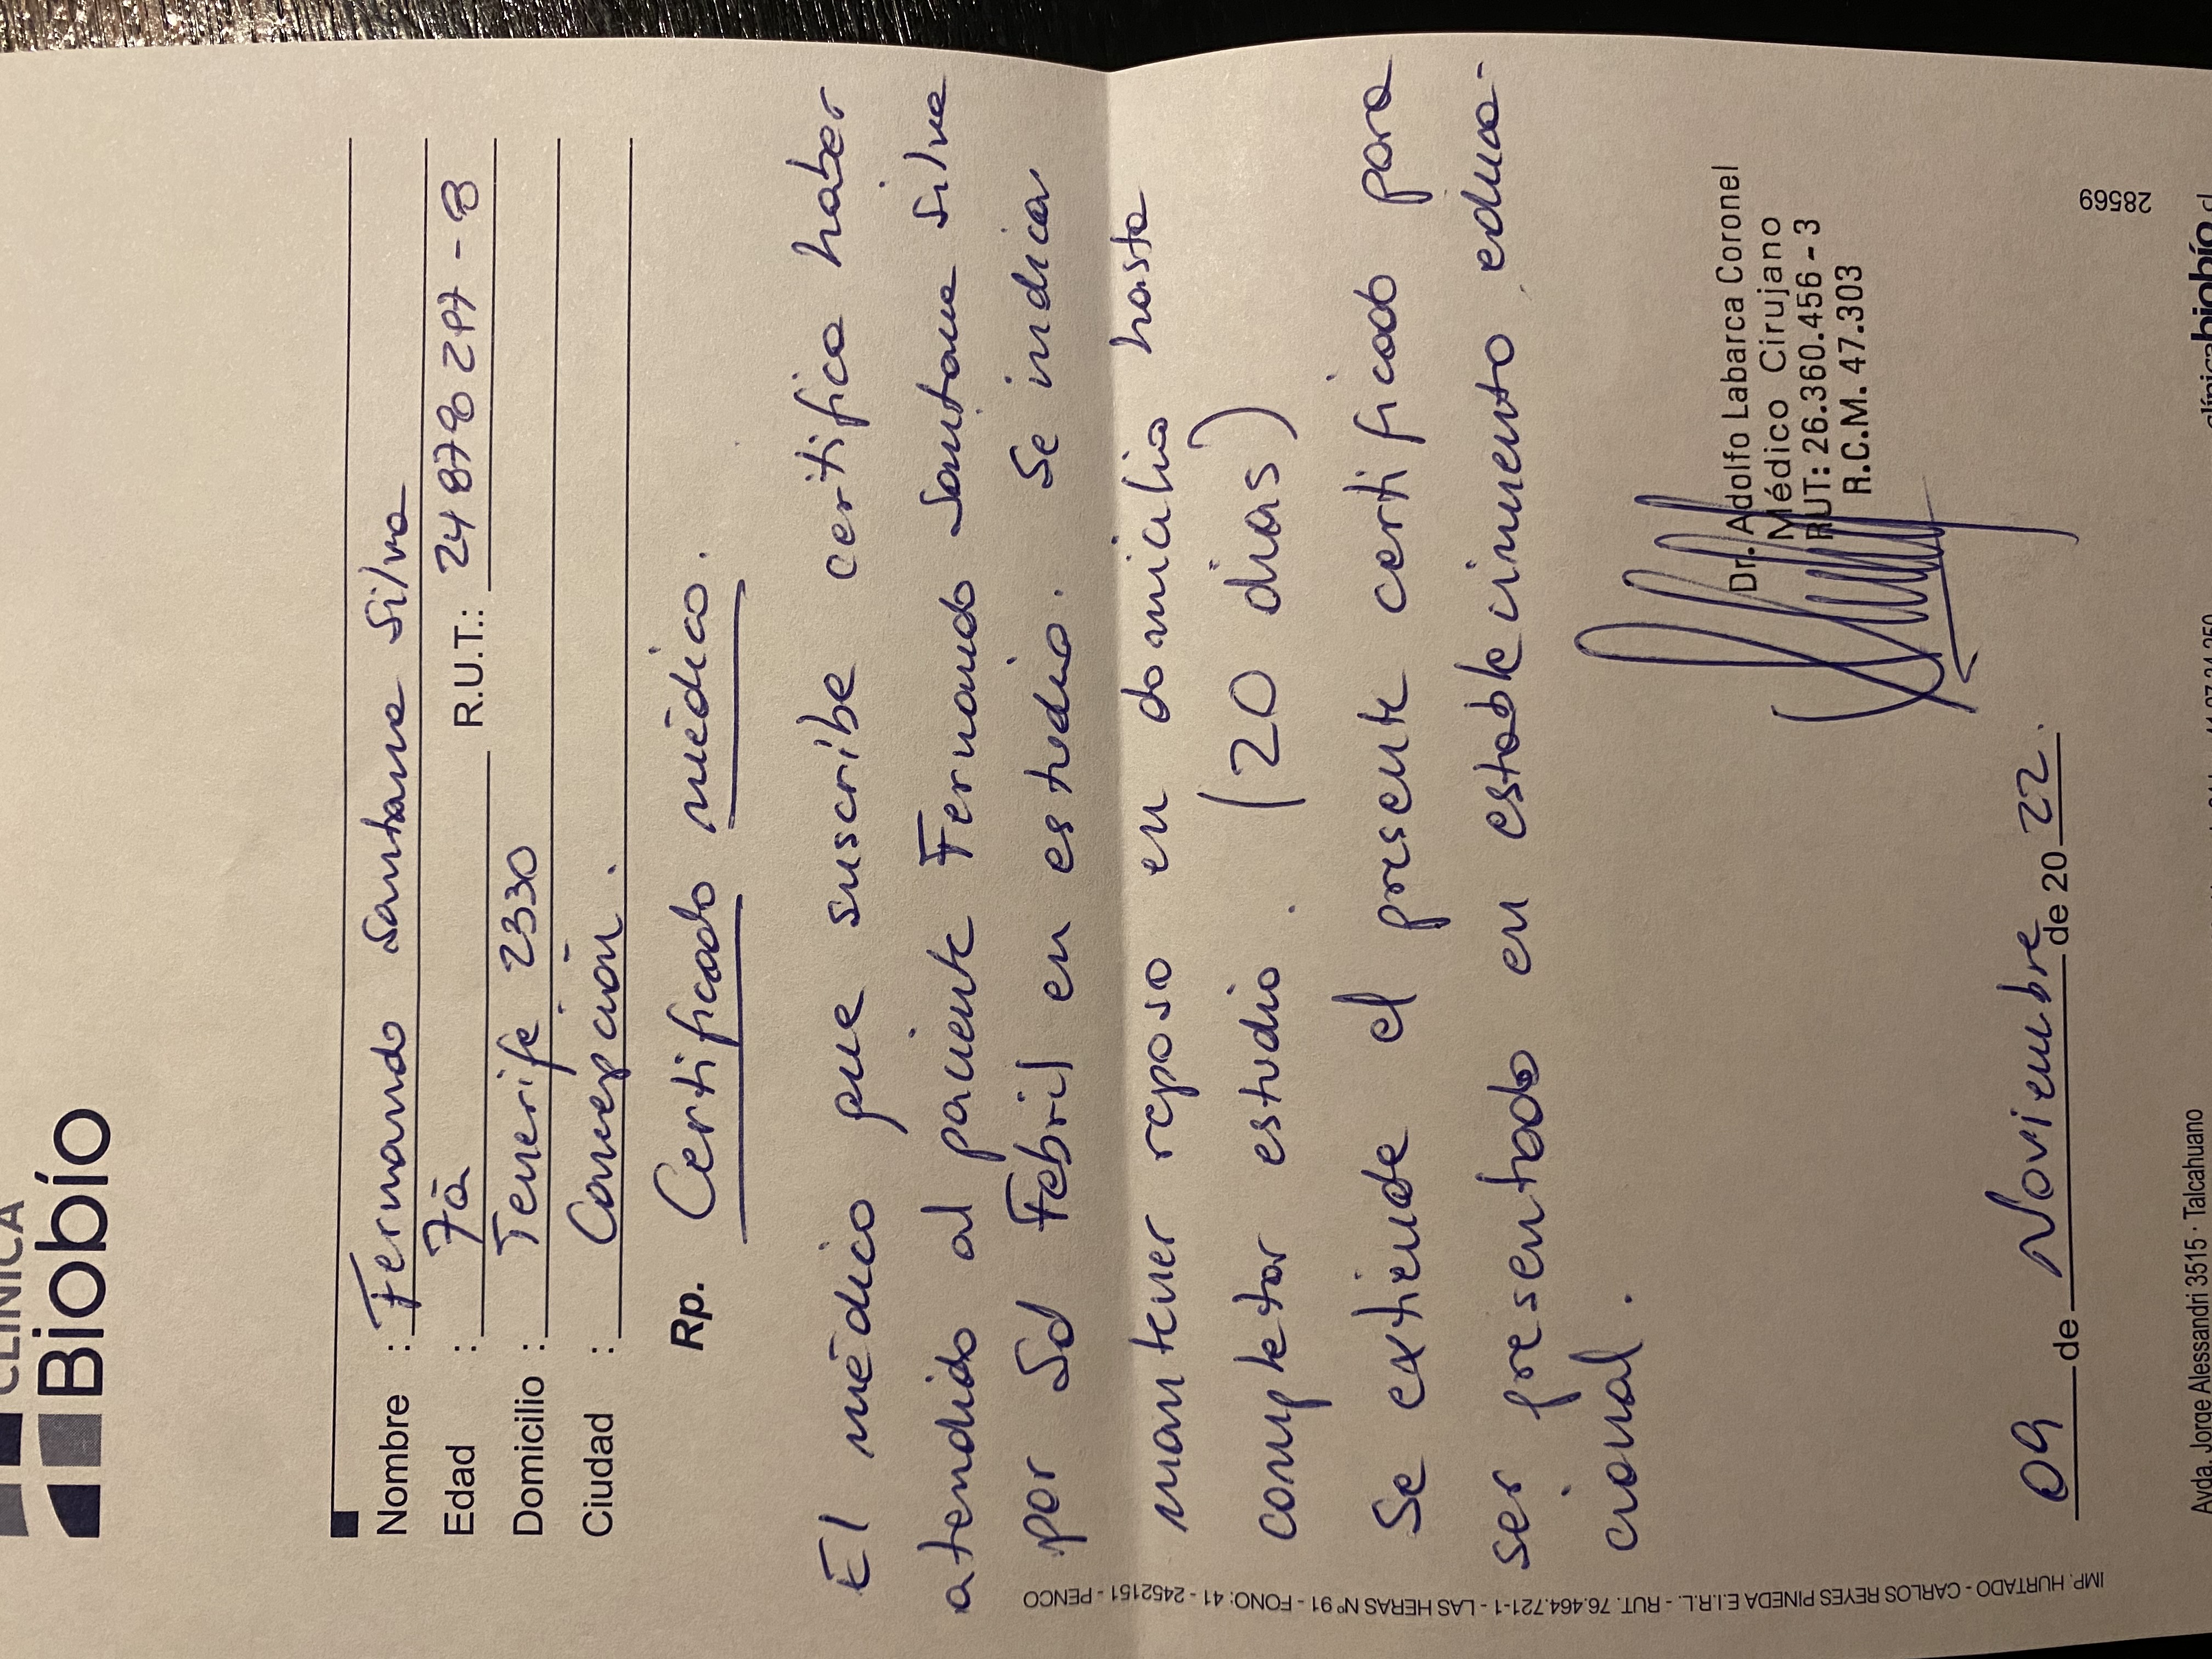 CLÍNICA
Biobío
Nombre : Fernando Santana Silva
Edad : 7a R.U.T.: 24 878 297 - 8
Domicilio : Tenerife 2330
Ciudad : Concepción.
Rp. Certificado médico.
El médico que suscribe certifica haber
atendido al paciente Fernando Santana Silva
por Sd Febril en estudio. Se indica
mantener reposo en domicilio hasta
completar estudio. (20 dias)
Se extiende el presente certificado para
ser presentado en establecimiento educa-
cional.
Dr. Adolfo Labarca Coronel
Médico Cirujano
RUT: 26.360.456 - 3
R.C.M. 47.303
09 de Noviembre de 20 22.
28569
Avda. Jorge Alessandri 3515 · Talcahuano
clínicabiobío.cl
IMP. HURTADO - CARLOS REYES PINEDA E.I.R.L. - RUT. 76.464.721-1 - LAS HERAS Nº 91 - FONO: 41 - 2452151 - PENCO